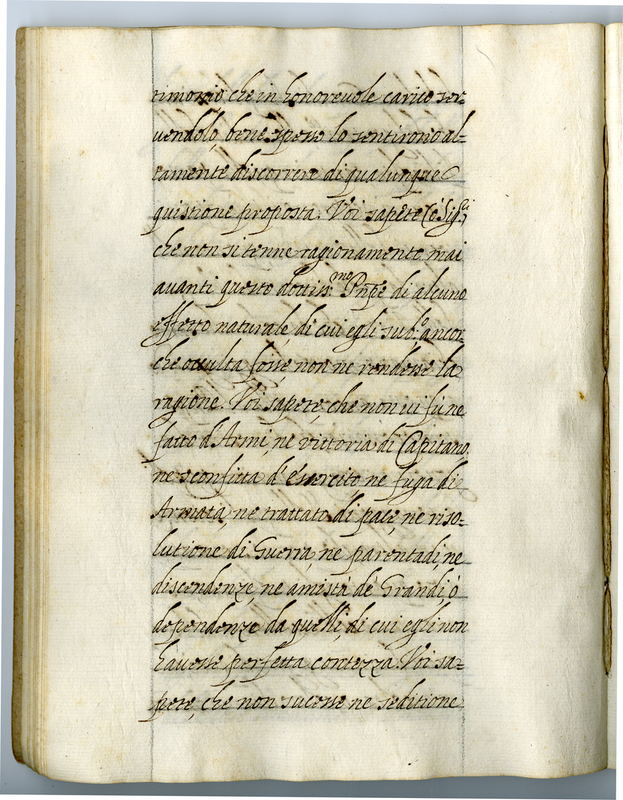 timonio che in honorevole carico ser
uendolo bene spesso lo sentirono al=
tamente discorrere di qualunque
quistione proposta. Voi sapete ò Sig.ri
che non si tenne ragionamento mai
auanti questo dottiss.mo Pnpe di alcuno
effetto naturale, di cui egli sub.o ancor
che occulta fosse non ne rendesse la
ragione. Voi sapete, che non ui fù ne
fatto d'Armi, ne vittoria di Capitano,
ne sconfitta d'essercito ne fuga di
Armata, ne trattato di pace, ne riso=
lutione di Guerra, ne parentadi ne
discendenze, ne amistà de Grandi, ò
dependenze da quelli, di cui egli non
hauesse perfetta contezza. Voi sa=
pete, che non sucesse ne seditione